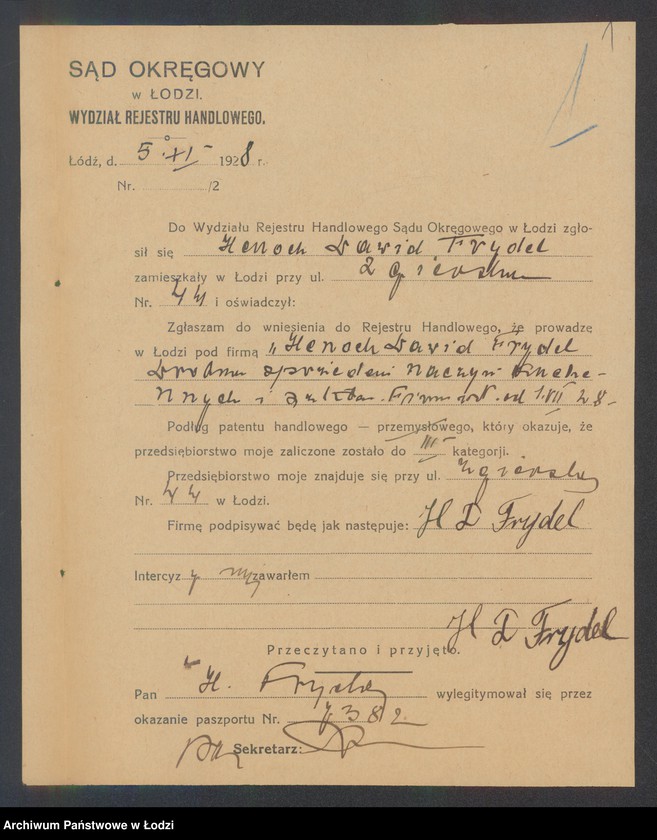 1
SĄD OKRĘGOWY
w ŁODZI.
WYDZIAŁ REJESTRU HANDLOWEGO.
Łódź, d. 5.XI 1928 r.
Nr. /2
Do Wydziału Rejestru Handlowego Sądu Okręgowego w Łodzi zgło-
sił się Henoch Dawid Frydel
zamieszkały w Łodzi przy ul. Zgierska
Nr. 44 i oświadczył:
Zgłaszam do wniesienia do Rejestru Handlowego, że prowadzę
w Łodzi pod firmą „Henoch Dawid Frydel
sprzedaż naczyń
i od 1.VII 28
Podług patentu handlowego — przemysłowego, który okazuje, że
przedsiębiorstwo moje zaliczone zostało do III kategorji.
Przedsiębiorstwo moje znajduje się przy ul. Zgierskiej
Nr. 44 w Łodzi.
Firmę podpisywać będę jak następuje: H D Frydel
Intercyzy zawarłem
H D Frydel
Przeczytano i przyjęto.
Pan H. Frydel wylegitymował się przez
okazanie paszportu Nr. 7382.
Sekretarz:
Archiwum Państwowe w Łodzi